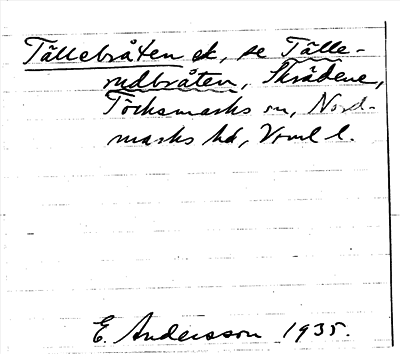 Tällebråten ek, se Tälle-
rudbråten, Skrådene,
Töcksmarks sn, Nord-
marks hd, Vrml l.
E. Andersson 1935.